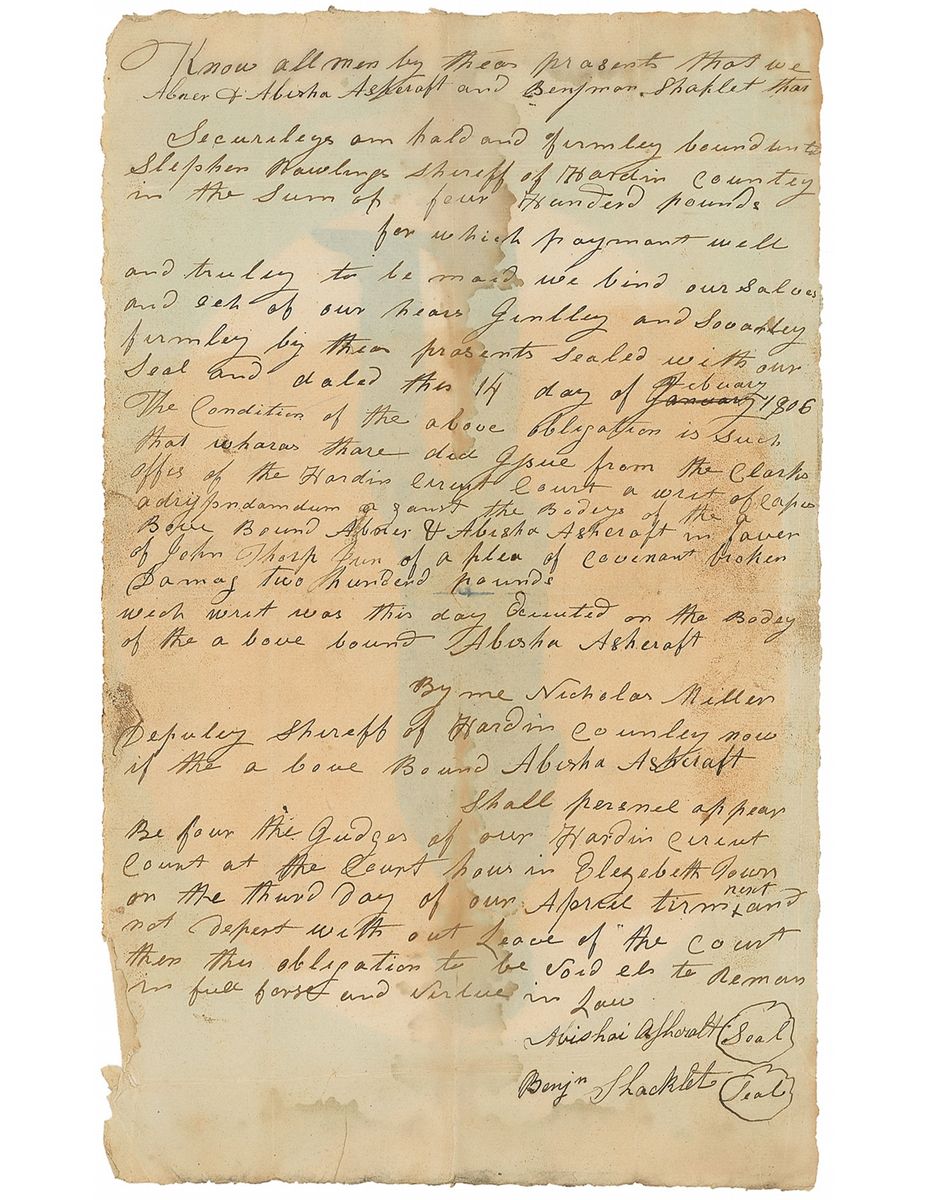 Know all men by theas presents that we
Abner & Abisha Ashcraft and Benjman Shaklet thar
Securiteys am hald and firmley bound unto
Stephen Rawlings Shereff of Hardin Countey
in the Sum of four Hunderd pounds
for which paymant well
and truley to be maid we bind our Salves
and ech of our hears Gintley and Sevarley
firmley by theas presents Sealed with our
Seal and dated this 14 day of January Febuary 1806
The Condition of the above obligation is Such
that wharas thare did Issue from the Clarks
offis of the Hardin Circut Court a writ of Capis
adrispondamdum a ganst the Bodeys of the a
Bove Bound Abner & Abisha Ashcraft in faver
of John Tharp Jun of a plea of Covenant broken
Damag two hunderd pounds
wech writ was this day Exicuted on the Bodey
of the a bove bound Abisha Ashcraft
By me Nicholas Miller
Deputey Shereff of Hardin Countey now
if the a bove Bound Abisha Ashcraft
Shall persnel appear
Be four the Gudges of our Hardin Circut
Court at the Court hous in Elezebeth Town
on the third Day of our Apreil tirm next and
not Depert with out Leave of the Court
then this obligation to be Void els to Reman
in full forse and Virtue in Law
Abishai Ashcraft Seal
Benjn Shacklet Seal